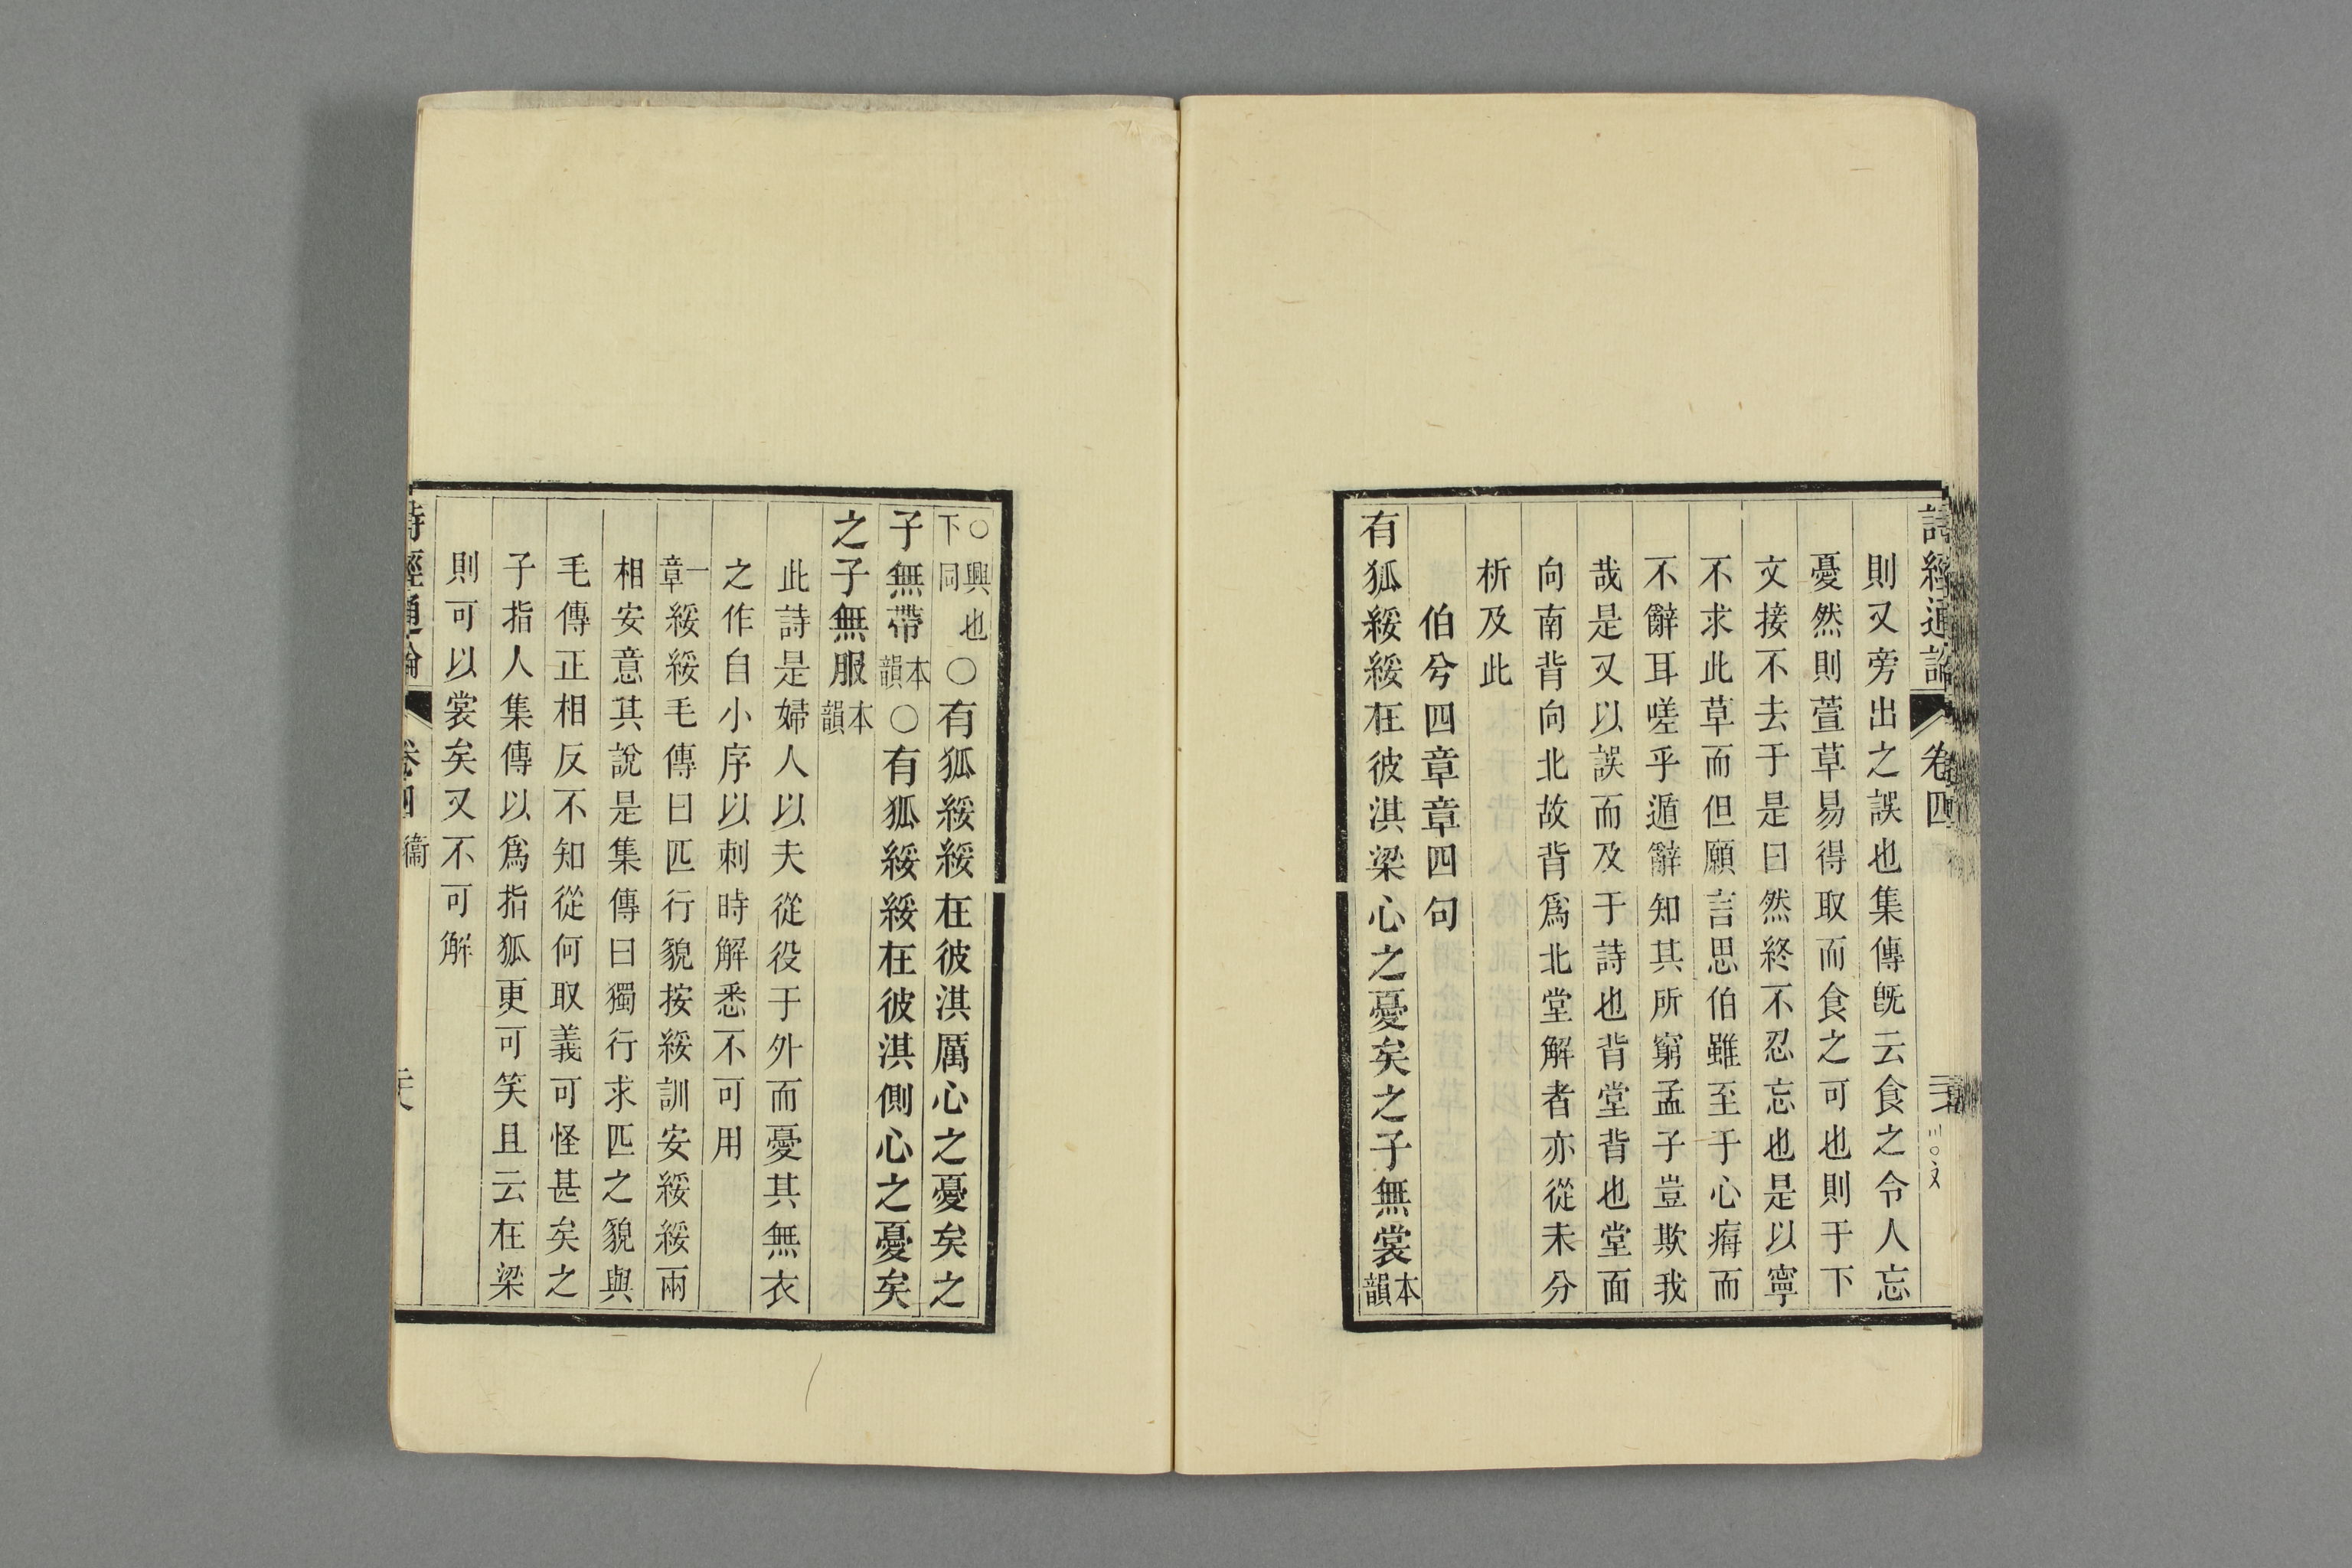 詩經通論 卷四
則又旁出之誤也集傳旣云食之令人忘
憂然則萱草易得取而食之可也則于下
文接不去于是曰然終不忍忘也是以寧
不求此草而但願言思伯雖至于心痗而
不辭耳嗟乎遁辭知其所窮孟子豈欺我
哉是又以誤而及于詩也背堂背也堂面
向南背向北故背爲北堂解者亦從未分
析及此
伯兮四章章四句
有狐綏綏在彼淇梁心之憂矣之子無裳本韻
○興也下同○有狐綏綏在彼淇厲心之憂矣之
子無帶本韻○有狐綏綏在彼淇側心之憂矣
之子無服本韻
此詩是婦人以夫從役于外而憂其無衣
之作自小序以刺時解悉不可用
一章綏綏毛傳曰匹行貌按綏訓安綏綏兩
相安意其說是集傳曰獨行求匹之貌與
毛傳正相反不知從何取義可怪甚矣之
子指人集傳以爲指狐更可笑且云在梁
則可以裳矣又不可解
詩經通論 卷四 衞